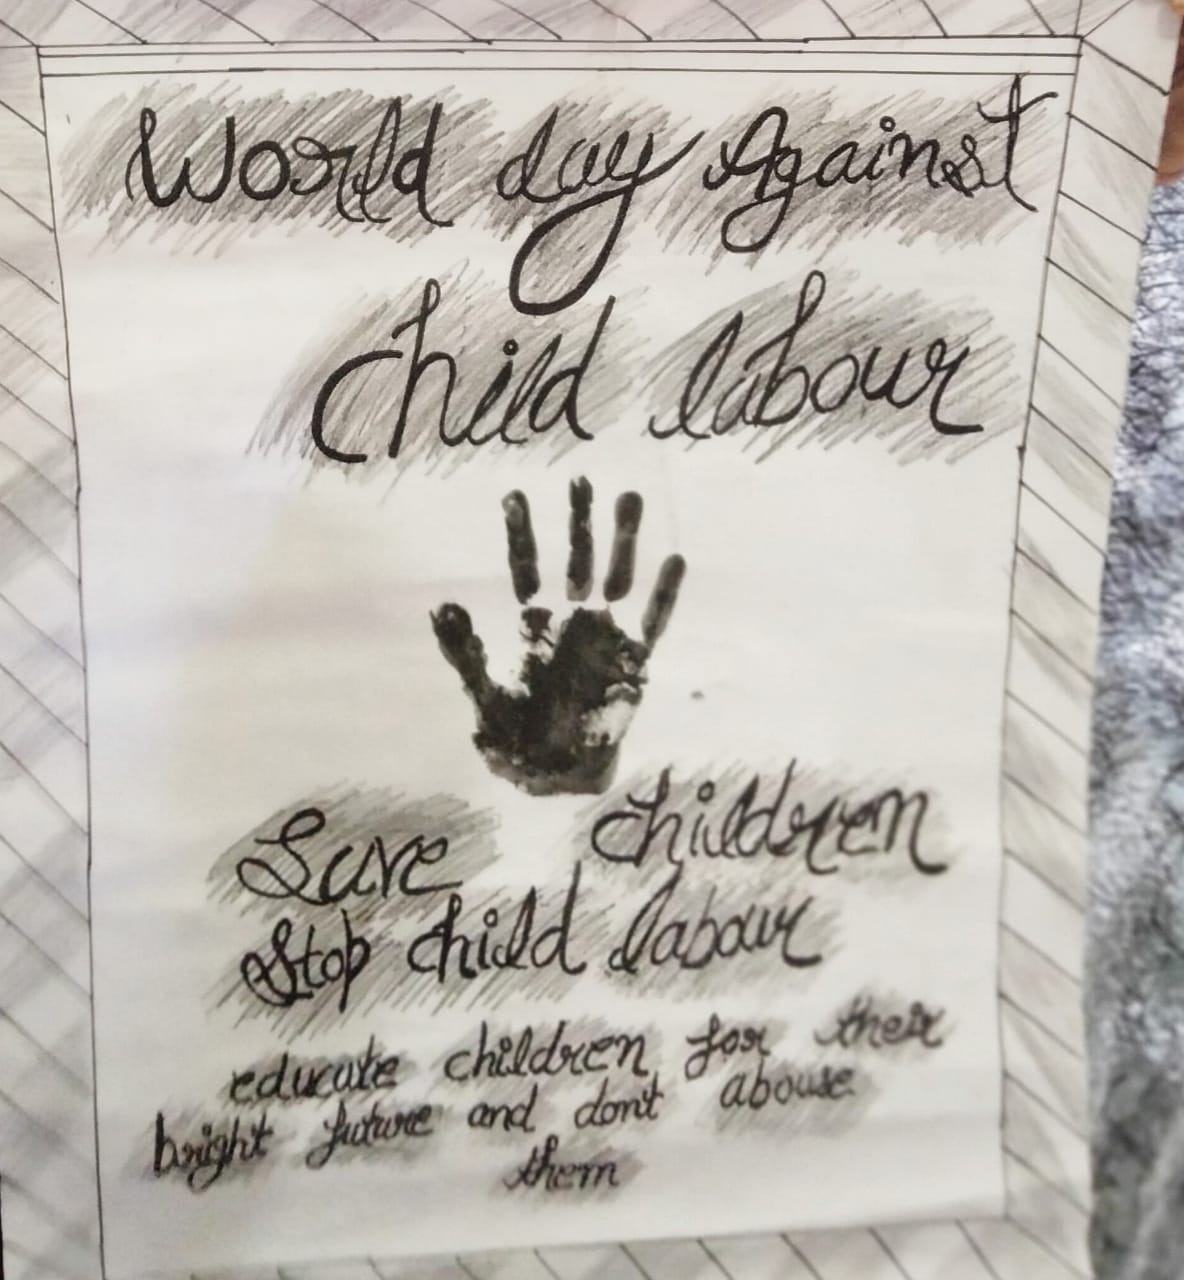 World day Against
Child labour
Save children
Stop child labour
educate children for their
bright future and don't abouse
them